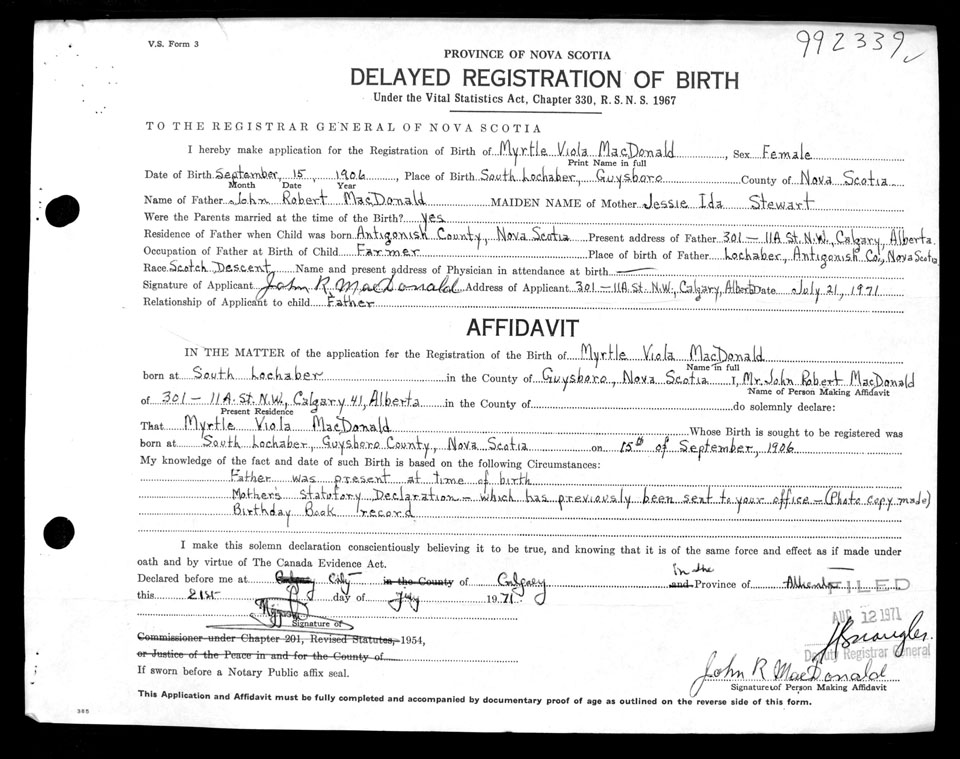 V.S. Form 3
992339
PROVINCE OF NOVA SCOTIA
DELAYED REGISTRATION OF BIRTH
Under the Vital Statistics Act, Chapter 330, R.S.N.S. 1967
TO THE REGISTRAR GENERAL OF NOVA SCOTIA
I hereby make application for the Registration of Birth of Myrtle Viola MacDonald, Sex Female
Print Name in full
Date of Birth September, 15, 1906, Place of Birth South Lochaber, Guysboro County of Nova Scotia
Month Date Year
Name of Father John Robert MacDonald MAIDEN NAME of Mother Jessie Ida Stewart
Were the Parents married at the time of the Birth? yes
Residence of Father when Child was born Antigonish County, Nova Scotia Present address of Father 301 - 11A St. N.W., Calgary, Alberta.
Occupation of Father at Birth of Child Farmer Place of birth of Father Lochaber, Antigonish Co., Nova Scotia
Race Scotch Descent Name and present address of Physician in attendance at birth —
Signature of Applicant John R MacDonald Address of Applicant 301 - 11A St. N.W., Calgary, Alberta Date July 21, 1971
Relationship of Applicant to child Father
AFFIDAVIT
IN THE MATTER of the application for the Registration of the Birth of Myrtle Viola MacDonald
Name in full
born at South Lochaber in the County of Guysboro, Nova Scotia I, Mr. John Robert MacDonald
Name of Person Making Affidavit
of 301 - 11A. St. N.W., Calgary 41, Alberta in the County of do solemnly declare:
Present Residence
That Myrtle Viola MacDonald Whose Birth is sought to be registered was
born at South Lochaber, Guysboro County, Nova Scotia on 15th of September, 1906
My knowledge of the fact and date of such Birth is based on the following Circumstances:
Father was present at time of birth
Mother's Statutory Declaration - which has previously been sent to your office - (Photo copy made)
Birthday Book record
I make this solemn declaration conscientiously believing it to be true, and knowing that it is of the same force and effect as if made under
oath and by virtue of The Canada Evidence Act.
in the
Declared before me at City in the County of Calgary and Province of Alberta
FILED
this 21st day of July 1971
AUG 12 1971
Signature of
Commissioner under Chapter 201, Revised Statutes, 1954,
or Justice of the Peace in and for the County of
Deputy Registrar General
If sworn before a Notary Public affix seal.
John R MacDonald
Signature of Person Making Affidavit
This Application and Affidavit must be fully completed and accompanied by documentary proof of age as outlined on the reverse side of this form.
385